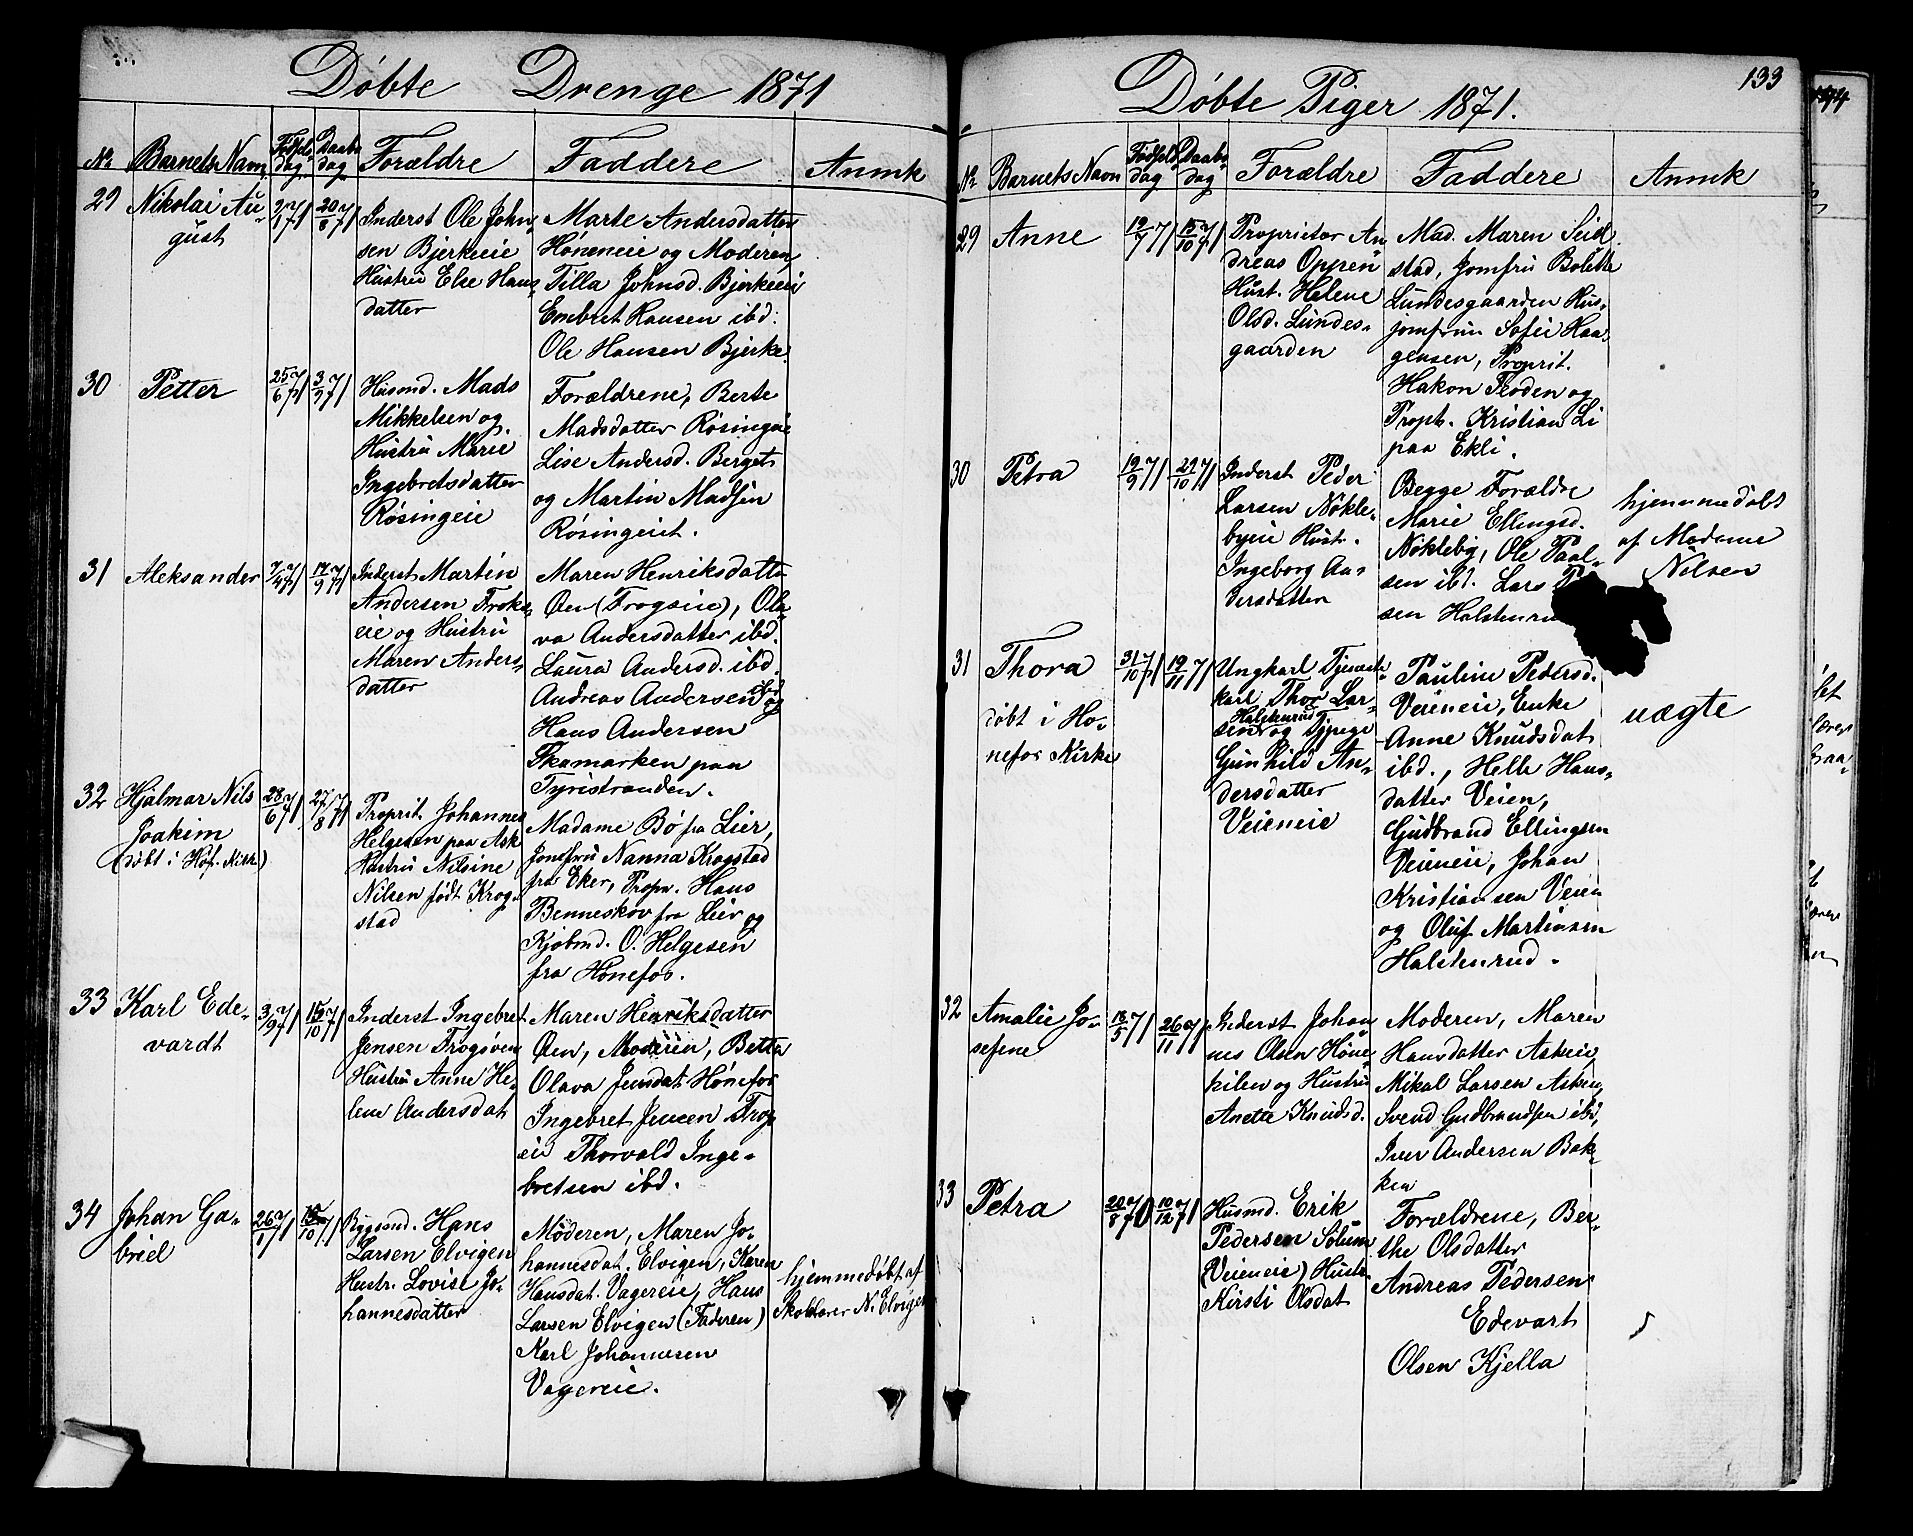 Døbte Drenge 1871
No Barnets Navn Fødsels dag Daabs dag Forældre Faddere Anmk
29 Nikolai Au-
gust
2/1 71 20/8 71
Inderst Ole John-
sen Bjerkeeie
Hustru Else Hans-
datter
Marte Andersdatter
Høneneie og Moderen,
Tilla Johnsd. Bjerkeeie
Embret Hansen ibd.
Ole Hansen Bjerke.
30 Petter
25/6 71 3/9 71
Husmd. Mads
Mikkelsen og
Hustru Marie
Ingebretsdatter
Røsingeie
Forældrene, Berte
Madsdatter Røsingeie
Lise Andersd. Berget
og Martin Madsen
Røsingeiet.
31 Aleksander
7/4 71 17/9 71
Inderst Martin
Andersen Froks-
eie og Hustru
Maren Anders-
datter
Maren Henriksdatte
Øen (Frogseie), Ola-
va Andersdatter ibd.
Laura Andersd. ibd.
Andreas Andersen ibd og
Hans Andersen
Skamarken paa
Tyristranden.
32 Hjalmar Nils
Joakim
(døbt i Høf. Kirk)
28/6 71 27/8 71
Proprit. Johannes
Helgesen paa Ask
Hustru Nilsine
Nilsen født Krog-
stad
Madame Bø fra Lier,
Jomfru Nanna Krogstad
fra Eker, Propr. Hans
Benneskov fra Lier og
Kjøbmd. O. Helgesen
fra Hønefos.
33 Karl Ede-
vardt
3/9 71 15/10 71
Inderst Ingebret
Jensen Frogsøen
Hustru Anne He-
lene Andersdat
Maren Henriksdatter
Øen, Moderen, Betta
Olava Jensdat Hønefos
Ingebret Jensen Frogs
eie Thorvald Inge-
bretsen ibd.
34 Johan Ga-
briel
26/1 71 15/10 71
Bygsmd. Hans
Larsen Elvigen
Hustr. Lovise Jo-
hannesdatter
Moderen, Maren Jo-
hannesdat. Elvigen, Karen
Hansdat. Vagereie, Hans
Larsen Elvigen (Faderen)
Karl Johannesen
Vagereie.
hjemmedøbt af
Skolelærer N. Elvigen
Døbte Piger 1871.
133
No Barnets Navn Fødsels dag Daabs dag Forældre Faddere Anmk
29 Anne
12/7 71 15/10 71
Proprietær An-
dreas Oppen
Hust. Helene
Olsd. Lundes-
gaarden
Mad. Maren Seid-
stad, Jomfru Bolette
Lundesgaarden Hus-
jomfrun Sofie Haa-
gensen, Proprit.
Hakon Floden og
Propt. Kristian Li
paa Ekli.
30 Petra
19/9 71 29/10 71
Inderst Peder
Larsen Nøkle-
byeie Hust.
Ingeborg An-
dersdatter
Begge Forældre
Marie Ellingsd.
Nøkleby, Ole Paal-
sen ibd. Lars
sen Halstenrud
hjemmedøbt
af Madame
Nilsen
31 Thora
døbt i Hø-
nefos Kirke
31/10 71 19/11 71
Ungkarl Tjeneste-
karl Thor Lar-
sen Halstenrud og Tjpige
Gunhild An-
dersdatter
Veieneie
Pauline Pedersd.
Veieneie, Enke
Anne Knudsdat
ibd., Helle Hans-
datter Veien,
Gudbrand Ellingsen
Veieneie, Johan
Kristiansen Veien
og Oluf Martinsen
Halstenrud.
uægte
32 Amalie Jo-
sefine
18/5 71 26/11 71
Inderst Johan
nes Olsen Høne-
kilen og Hustru
Anette Knudsd.
Moderen, Maren
Hansdatter Askeie,
Mikal Larsen Asken,
Svend Gudbrandsen ibd,
Iver Andersen Bak-
ken
33 Petra
20/8 70 10/12 71
Husmd. Erik
Pedersen Solum
(Veieneie) Hustr.
Kirsti Olsdat
Forældrene, Ber-
the Olsdatter
Andreas Pedersen
Edevart
Olsen Kjella